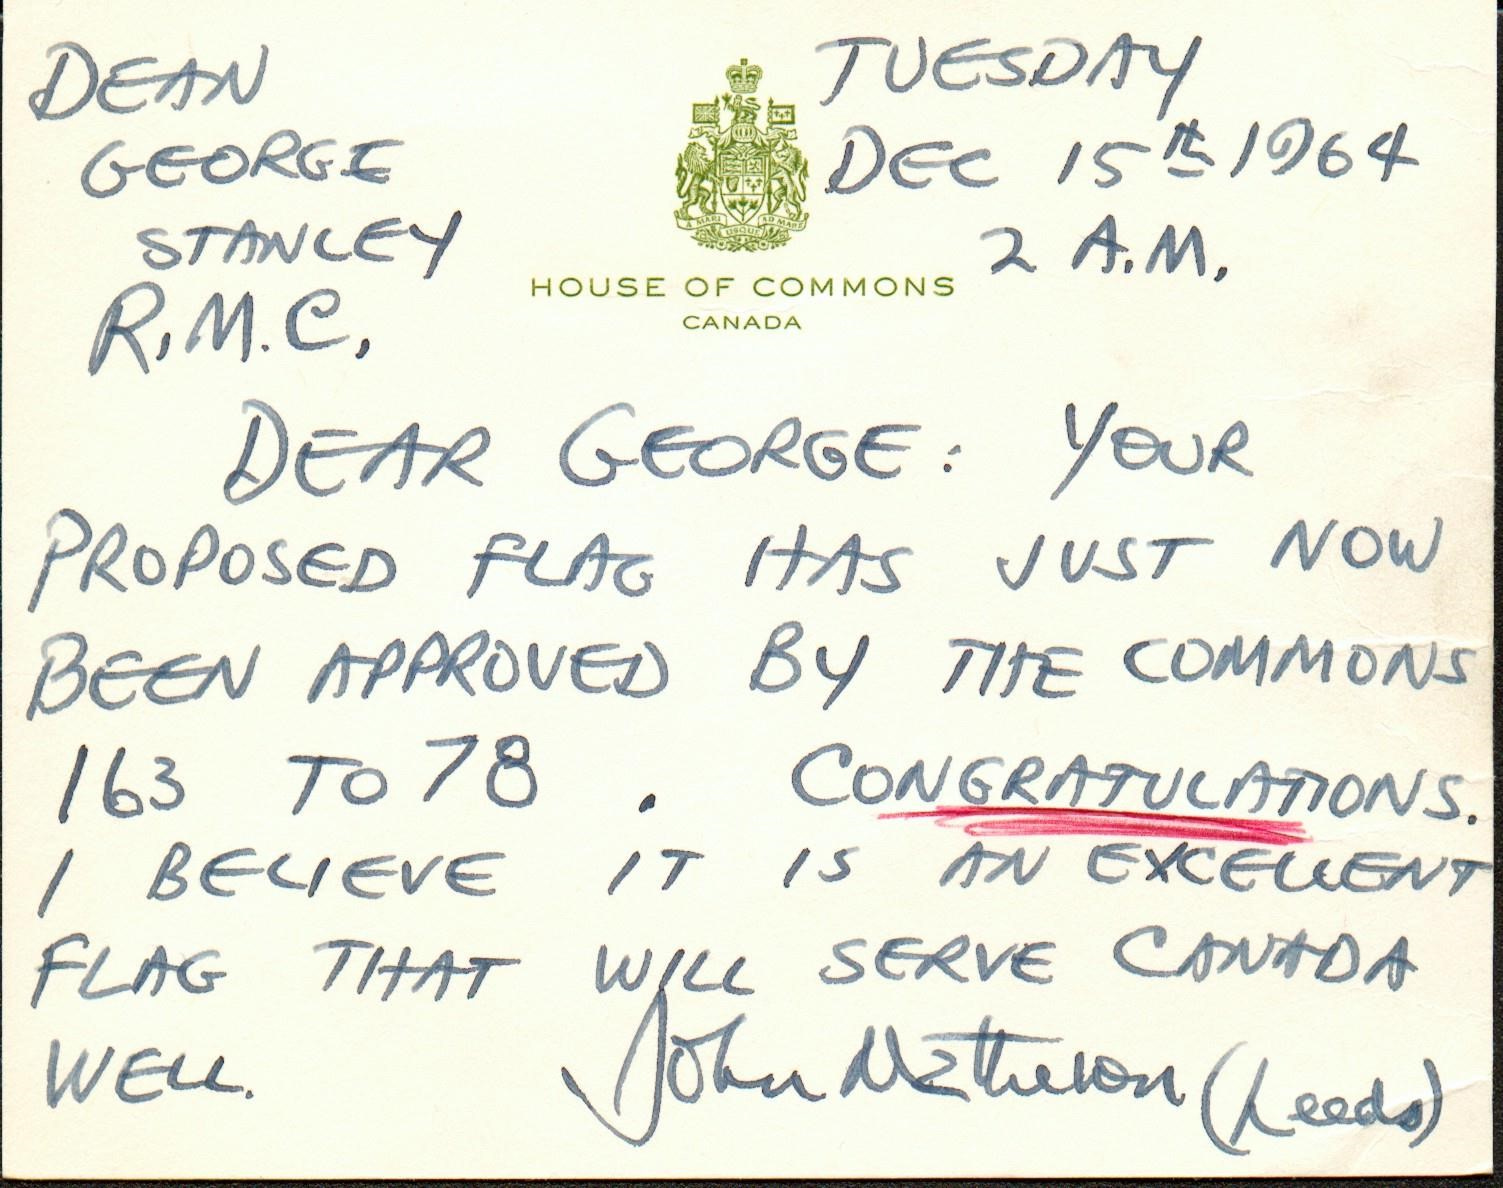 DEAN
GEORGE
STANLEY
R.M.C.
TUESDAY
DEC 15th 1964
2 A.M.
A MARI USQUE AD MARE
HOUSE OF COMMONS
CANADA
DEAR GEORGE: YOUR
PROPOSED FLAG HAS JUST NOW
BEEN APPROVED BY THE COMMONS
163 TO 78 . CONGRATULATIONS.
I BELIEVE IT IS AN EXCELLENT
FLAG THAT WILL SERVE CANADA
WELL. John Matheson (Leeds)